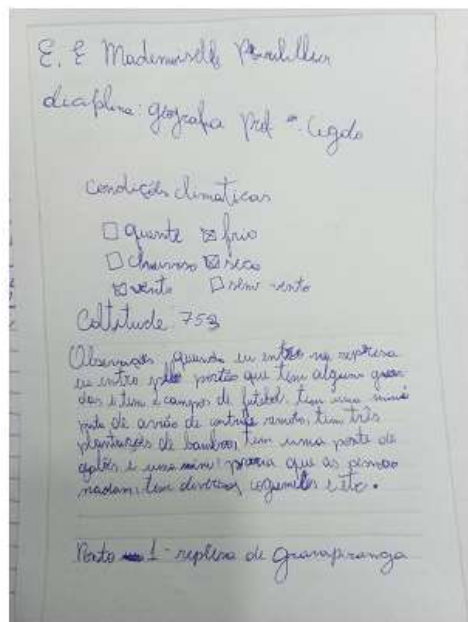 E. E Mademoiselle Perillier
diciplina: geografia prof
condições climaticas
☐ quente ☒ frio
☐ chuvoso ☒ seco
☒ vento ☐ sem vento
altitude 753
Observações, quando eu entro na represa
eu entro pelo portão que tem alguns guar
das e tem 2 campos de futebol, tem uma mini
pista de avião de controle remoto, tem três
plantações de bamboo, tem uma ponte de
e uma mini praia que as pessoas
nadam, tem diversos cogumelos e etc.
Ponto 1 - represa de Guarapiranga